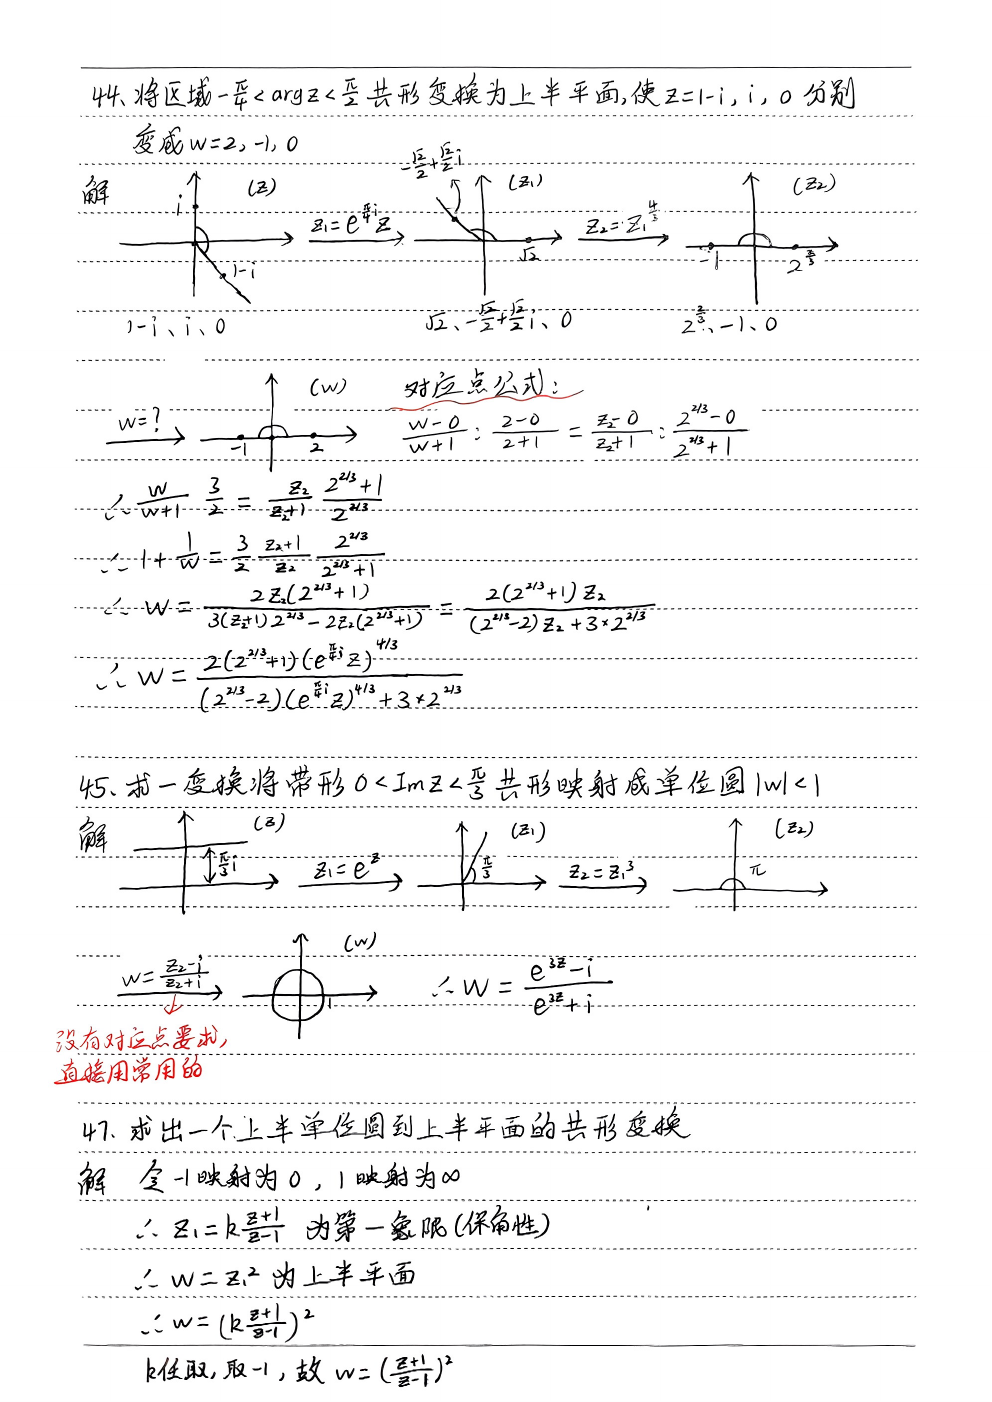 44、将区域 -π/4 < arg z < π/2 共形变换为上半平面,使 z=1-i, i, 0 分别
变成 w=2, -1, 0
解
(z) i 1-i
z₁=e^{π/4 i}z
-√2/2+√2/2 i (z₁) √2
z₂=z₁^{4/3}
(z₂) -1 2^{2/3}
1-i、i、0
√2、-√2/2+√2/2 i、0
2^{2/3}、-1、0
w=?
(w) -1 2
对应点公式:
(w-0)/(w+1) : (2-0)/(2+1) = (z₂-0)/(z₂+1) : (2^{2/3}-0)/(2^{2/3}+1)
∴ w/(w+1) 3/2 = z₂/(z₂+1) (2^{2/3}+1)/2^{2/3}
∴ 1+1/w = 3/2 (z₂+1)/z₂ 2^{2/3}/(2^{2/3}+1)
∴ w = 2z₂(2^{2/3}+1)/(3(z₂+1)2^{2/3}-2z₂(2^{2/3}+1)) = 2(2^{2/3}+1)z₂/((2^{2/3}-2)z₂+3×2^{2/3})
∴ w = 2(2^{2/3}+1)(e^{π/4 i}z)^{4/3}/((2^{2/3}-2)(e^{π/4 i}z)^{4/3}+3×2^{2/3})
45、求一变换将带形 0<Im z<π/3 共形映射成单位圆 |w|<1
解
(z) π/3 i
z₁=e^z
(z₁) π/3
z₂=z₁³
(z₂) π
w=(z₂-i)/(z₂+i)
(w) 1
∴ w = (e^{3z}-i)/(e^{3z}+i)
没有对应点要求,
直接用常用的
47、求出一个上半单位圆到上半平面的共形变换
解 令 -1映射为0, 1映射为∞
∴ z₁=k (z+1)/(z-1) 为第一象限(保角性)
∴ w=z₁² 为上半平面
∴ w=(k (z+1)/(z-1))²
k任取,取-1,故 w=((z+1)/(z-1))²